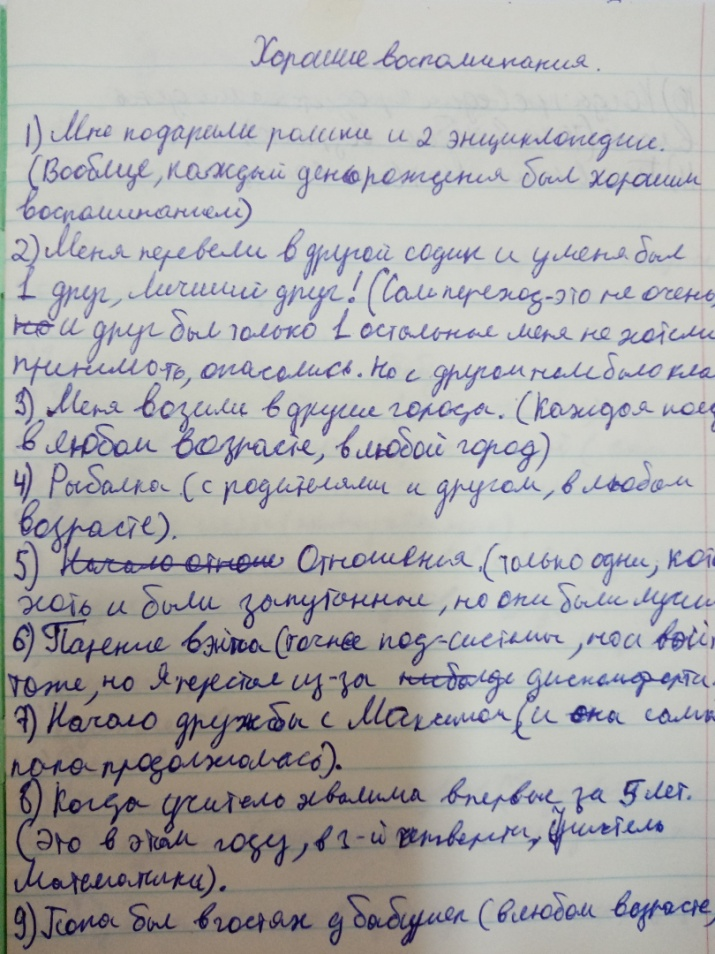 Хорошие воспоминания.
1) Мне подарили ролики и 2 энциклопедии.
(Вообще, каждый день рождения был хорошим
воспоминанием)
2) Меня перевели в другой садик и у меня был
1 друг, лучший друг! (Сам переход - это не очень,
но и друг был только 1 остальные меня не хотели
принимать, опасались. Но с другом нам было кла
3) Меня возили в другие города. (Каждая поез
в любом возрасте, в любой город)
4) Рыбалка (с родителями и другом, в любом
возрасте).
5) Начало отнош Отношения. (только одни, кото
хоть и были запутанные, но они были лучш
6) Парение вэйпа (точнее под-системы, но и вэйп
тоже, но я перестал из-за дискомфорта.
7) Начало дружбы с Максимом (и она сама
пока продолжалась).
8) Когда учитель хвалила впервые за 5 лет.
(Это в этом году, в 3-й четверти, Учитель
Математики).
9) Пока был в гостях у бабушек (в любом возрасте,